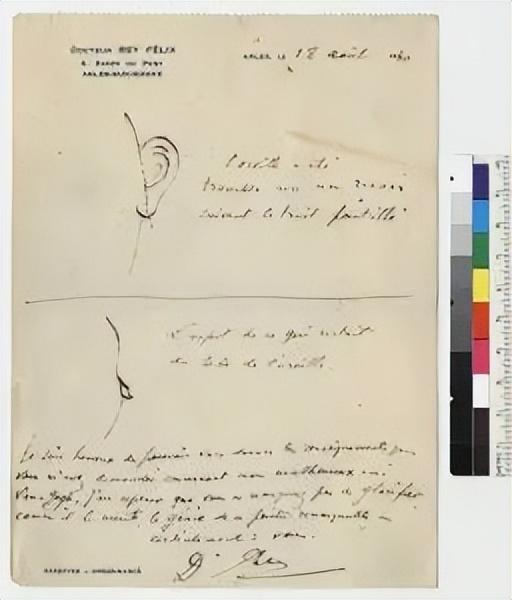 DOCTEUR REY FÉLIX
6, RAMPE DU PONT
ARLES-SUR-RHONE
ARLES, LE 18 août 1930
L'oreille a été
tranchée avec un rasoir
suivant le trait pointillé
L'aspect de ce qui restait
du lobe de l'oreille.
Je suis heureux de pouvoir vous donner les renseignements que
vous m'avez demandés concernant mon malheureux ami
Van Gogh, j'ose espérer que vous ne manquerez pas de glorifier
comme il le mérite, le génie de ce peintre remarquable
cordialement à vous.
Dr Rey